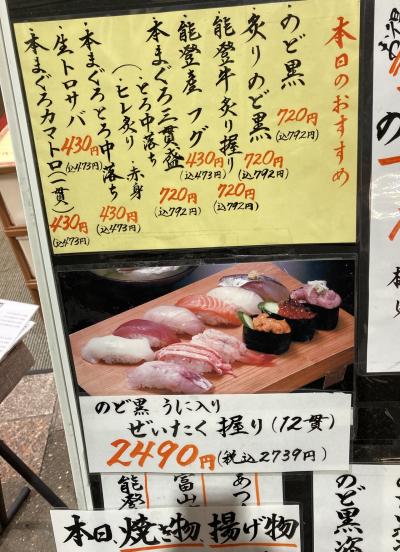 本日のおすすめ
・のど黒 720円(込792円)
・炙りのど黒 720円(込792円)
・能登牛炙り握り 720円(込792円)
・能登産フグ 430円(込473円)
・本まぐろ三貫盛 720円(込792円)
(とろ中落ち・赤身
・ヒレ炙り)
・本まぐろとろ中落ち 430円(込473円)
・生トロサバ 430円(込473円)
・本まぐろカマトロ(一貫) 430円(込473円)
のど黒 うに入り
ぜいたく握り(12貫)
2490円(税込2739円)
あつ
富山
能登
のど黒
本日、焼き物、揚げ物